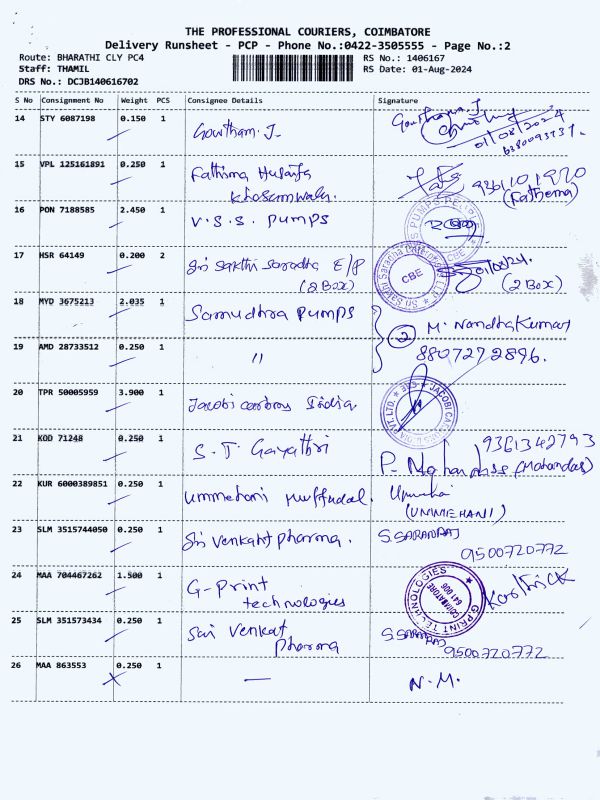 THE PROFESSIONAL COURIERS, COIMBATORE
Delivery Runsheet - PCP - Phone No.:0422-3505555 - Page No.:2
Route: BHARATHI CLY PC4
RS No.: 1406167
Staff: THAMIL
RS Date: 01-Aug-2024
DRS No.: DCJB140616702
S No Consignment No Weight PCS Consignee Details Signature
14 STY 6087198 0.150 1 Gowtham. J Gowtham. J
01/08/2024
15 VPL 125161891 0.250 1 Fathima Husaifa
Khosamwala
9361101970
(Fathema)
16 PON 7188585 2.450 1 V.S.S. Pumps
17 HSR 64149 0.200 2 Sri Sakthi Saradha E/P
(2 Box)
CBE
01/08/24.
(2 Box)
18 MYD 3675213 2.035 1 Samudhra Pumps 2 M. Nandhakumar
19 AMD 28733512 0.250 1 " 8807272896.
20 TPR 50005959 3.900 1 Jacobi carbons India
21 KOD 71248 0.250 1 S. T. Gayathri 9361342793
P. Mohandss (Mohandas)
22 KUR 6000389851 0.250 1 ummehani muffadal.
(UMMEHANI)
23 SLM 3515744050 0.250 1 Sri Venkat pharma. S. SARANRAJ
9500720772
24 MAA 704467262 1.500 1 G-Print
technologies
G PRINT TECHNOLOGIES
COIMBATORE
641 006
25 SLM 351573434 0.250 1 Sai Venkat
Pharma
S. SARANRAJ
9500720772
26 MAA 863553 0.250 1 — N.M.